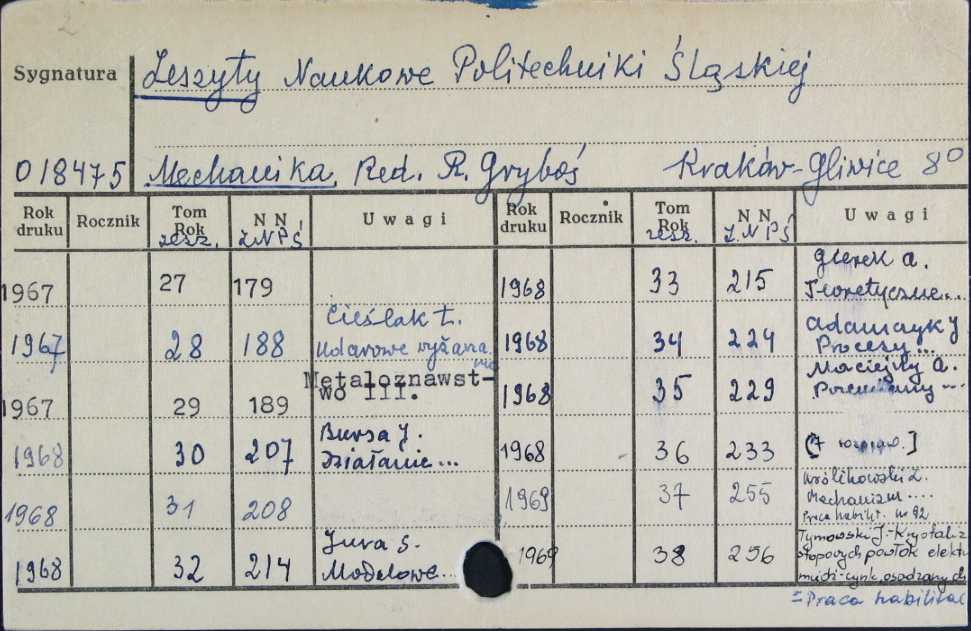 Sygnatura
Zeszyty Naukowe Politechniki Śląskiej
018475 Mechanika. Red. R. Gryboś Kraków-Gliwice 8°
Rok druku Rocznik Tom Rok zesz. N N Z.N P Ś Uwagi
1967 27 179
1967 28 188 Cieślak L. Udarowe wyżarza nie
1967 29 189 Metaloznawst-
wo III.
1968 30 207 Bursa J. Działanie...
1968 31 208
1968 32 214 Jura S. Modelowe...
Rok druku Rocznik Tom Rok zesz. N N Z.N P Ś Uwagi
1968 33 215 Gierek A. Teoretyczne...
1968 34 224 Adamczyk J Procesy...
1968 35 229 Maciejny A. Przemiany...
1968 36 233 [7 rozpraw.]
1969 37 255 Królikowski Z.
Mechanizm....
Praca habilit. nr 92
1969 38 256 Tymowski J.-Krystaliz
stopowych powłok elektr
miedź-cynk, osadzanych
=Praca habilitac